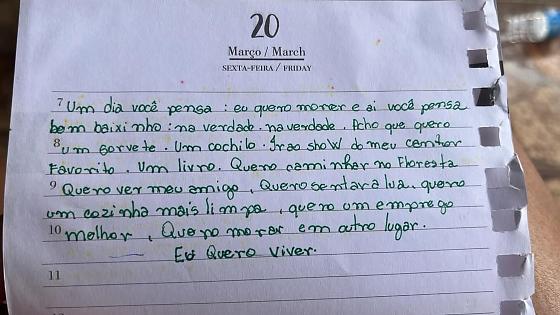 20
Março / March
SEXTA-FEIRA / FRIDAY
7 Um dia você pensa: eu quero morrer e ai você pensa
bem baixinho: na verdade. na verdade. Acho que quero
8 um sorvete. Um cochilo. Ir ao show do meu cantor
Favorito. Um livro. Quero caminhar no Floresta
9 Quero ver meu amigo, Quero sentar a lua. quero
um cozinha mais limpa, quero um emprego
10 melhor, Quero morar em outro lugar.
Eu Quero viver.
11